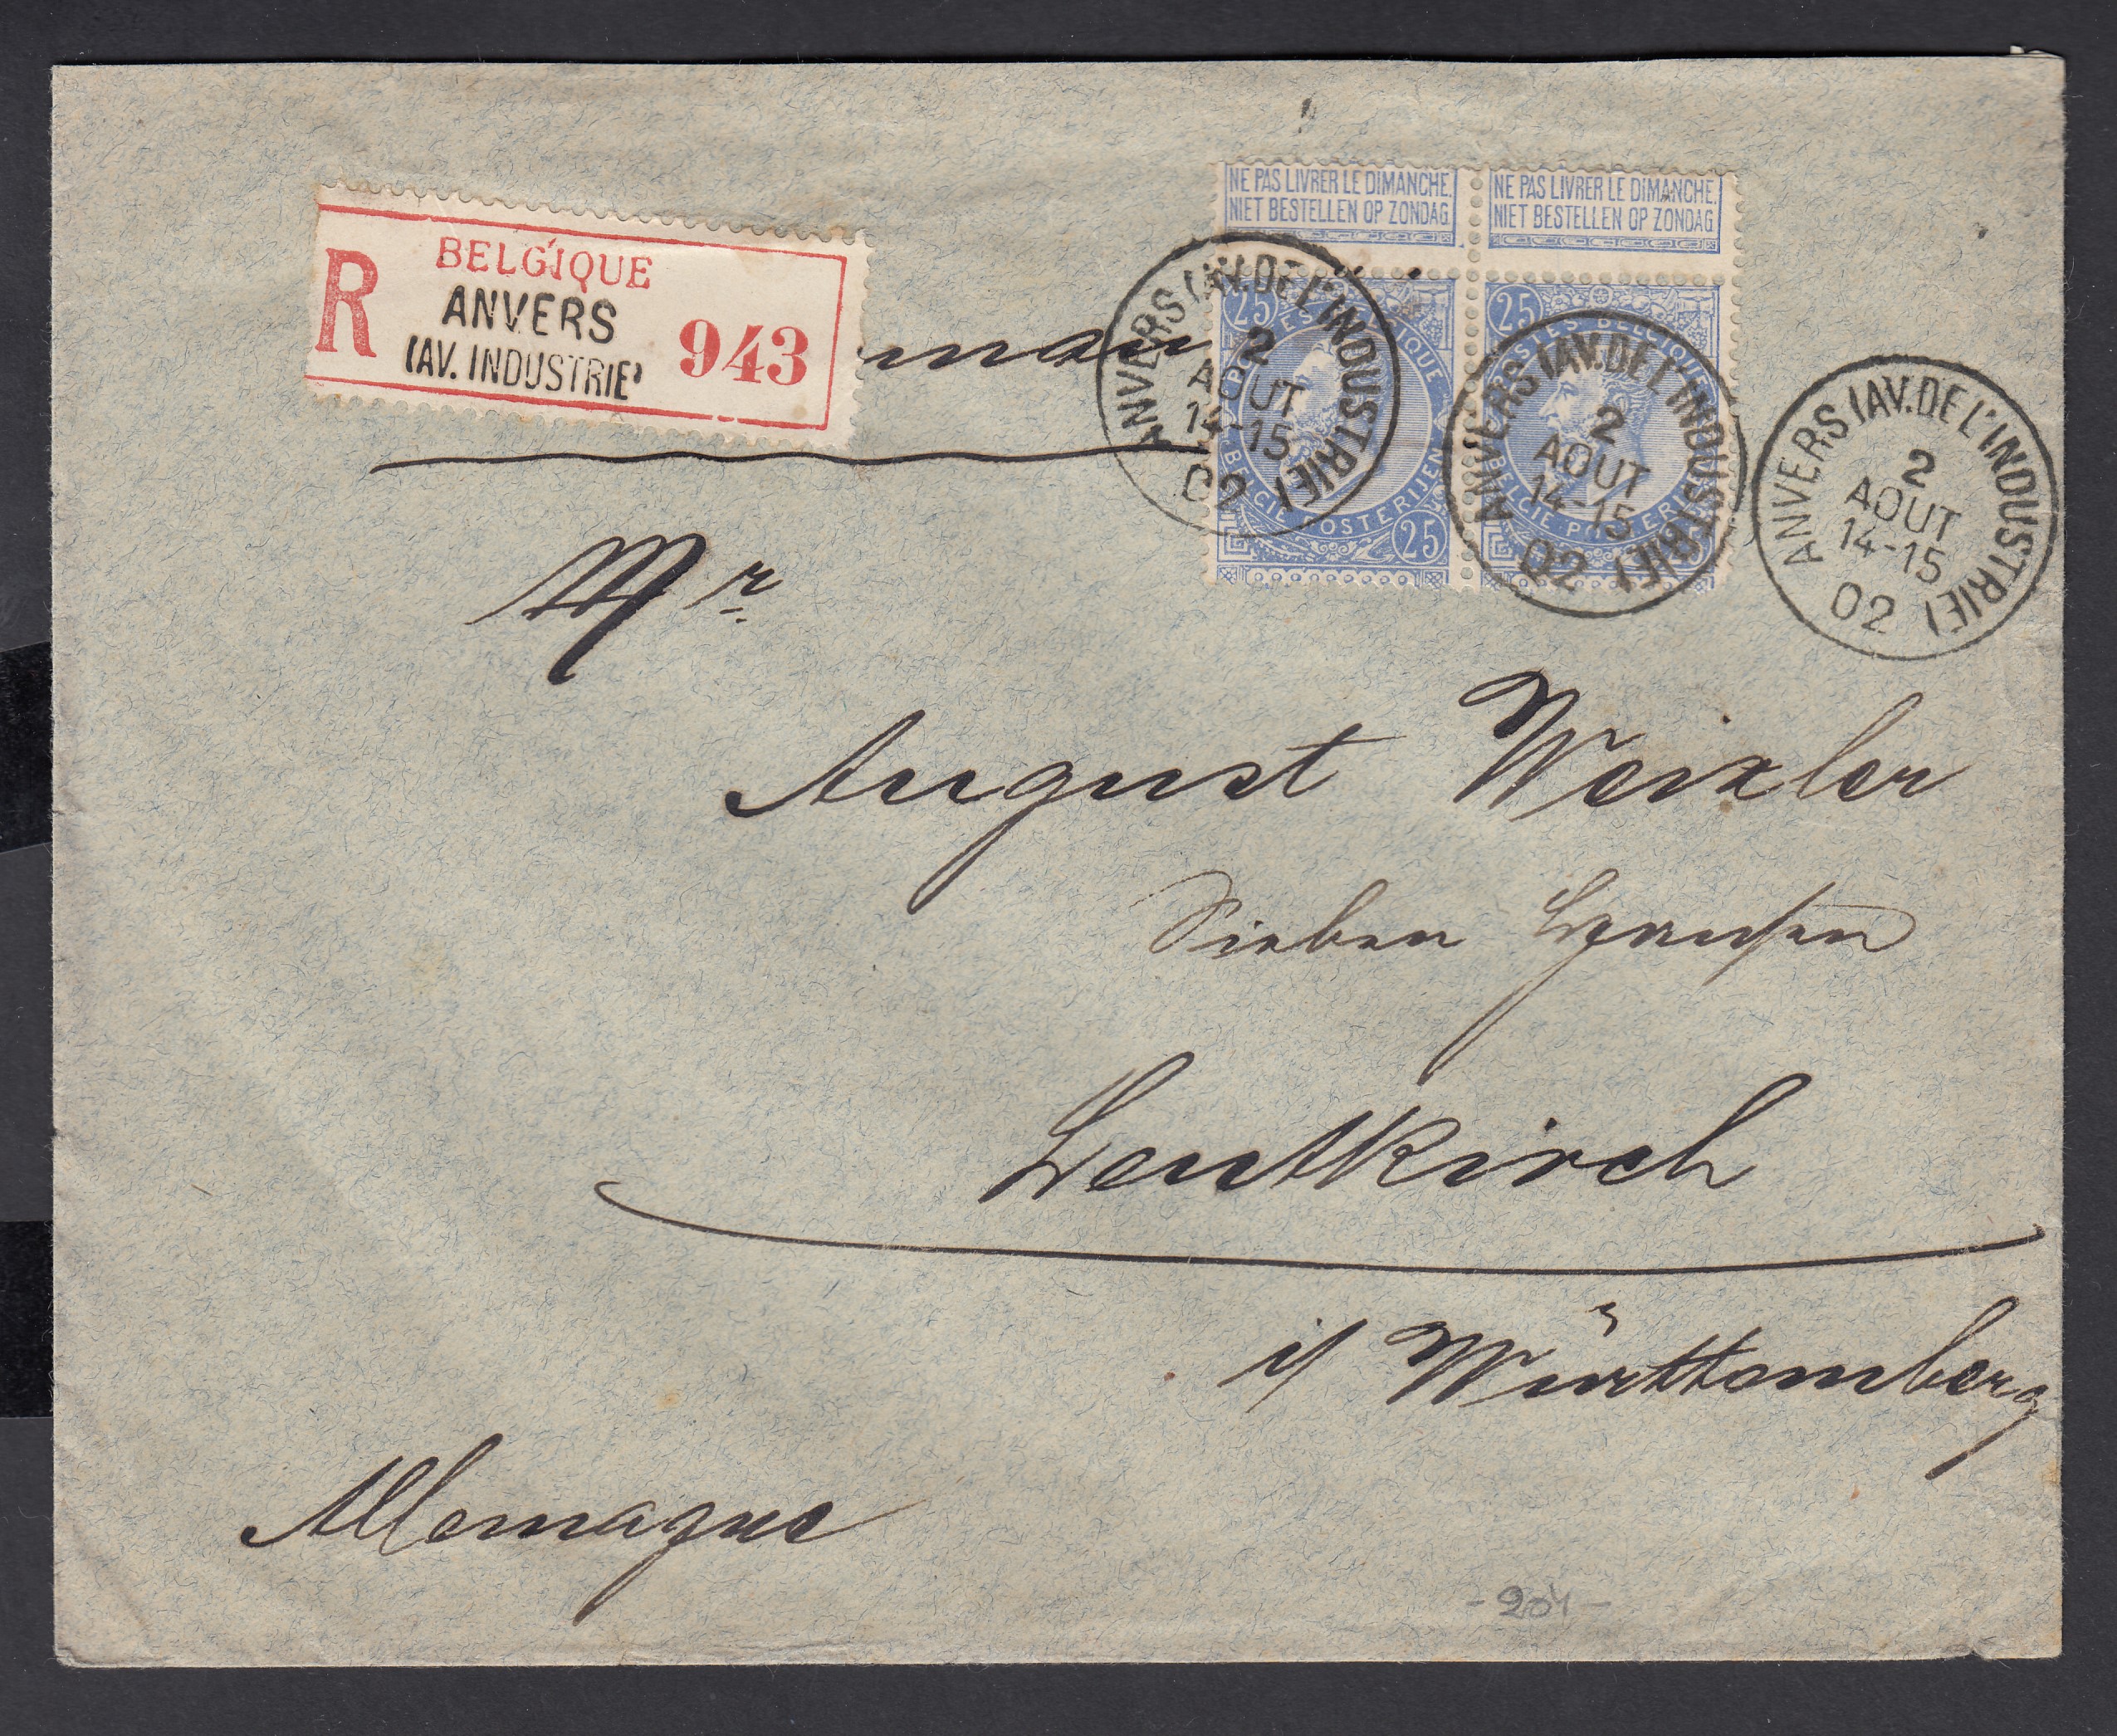 BELGIQUE
R
ANVERS
(AV. INDUSTRIE)
943
NE PAS LIVRER LE DIMANCHE.
NIET BESTELLEN OP ZONDAG
NE PAS LIVRER LE DIMANCHE.
NIET BESTELLEN OP ZONDAG
25
POSTES BELGIQUE
BELGIE POSTERIJEN
25
25
POSTES BELGIQUE
BELGIE POSTERIJEN
ANVERS (AV. DE L'INDUSTRIE)
2
AOUT
14-15
02
ANVERS (AV. DE L'INDUSTRIE)
2
AOUT
14-15
02
ANVERS (AV. DE L'INDUSTRIE)
2
AOUT
14-15
02
Mr
August Weixler
Sieben
Leutkirch
i/ Württemberg
Allemagne
- 204 -